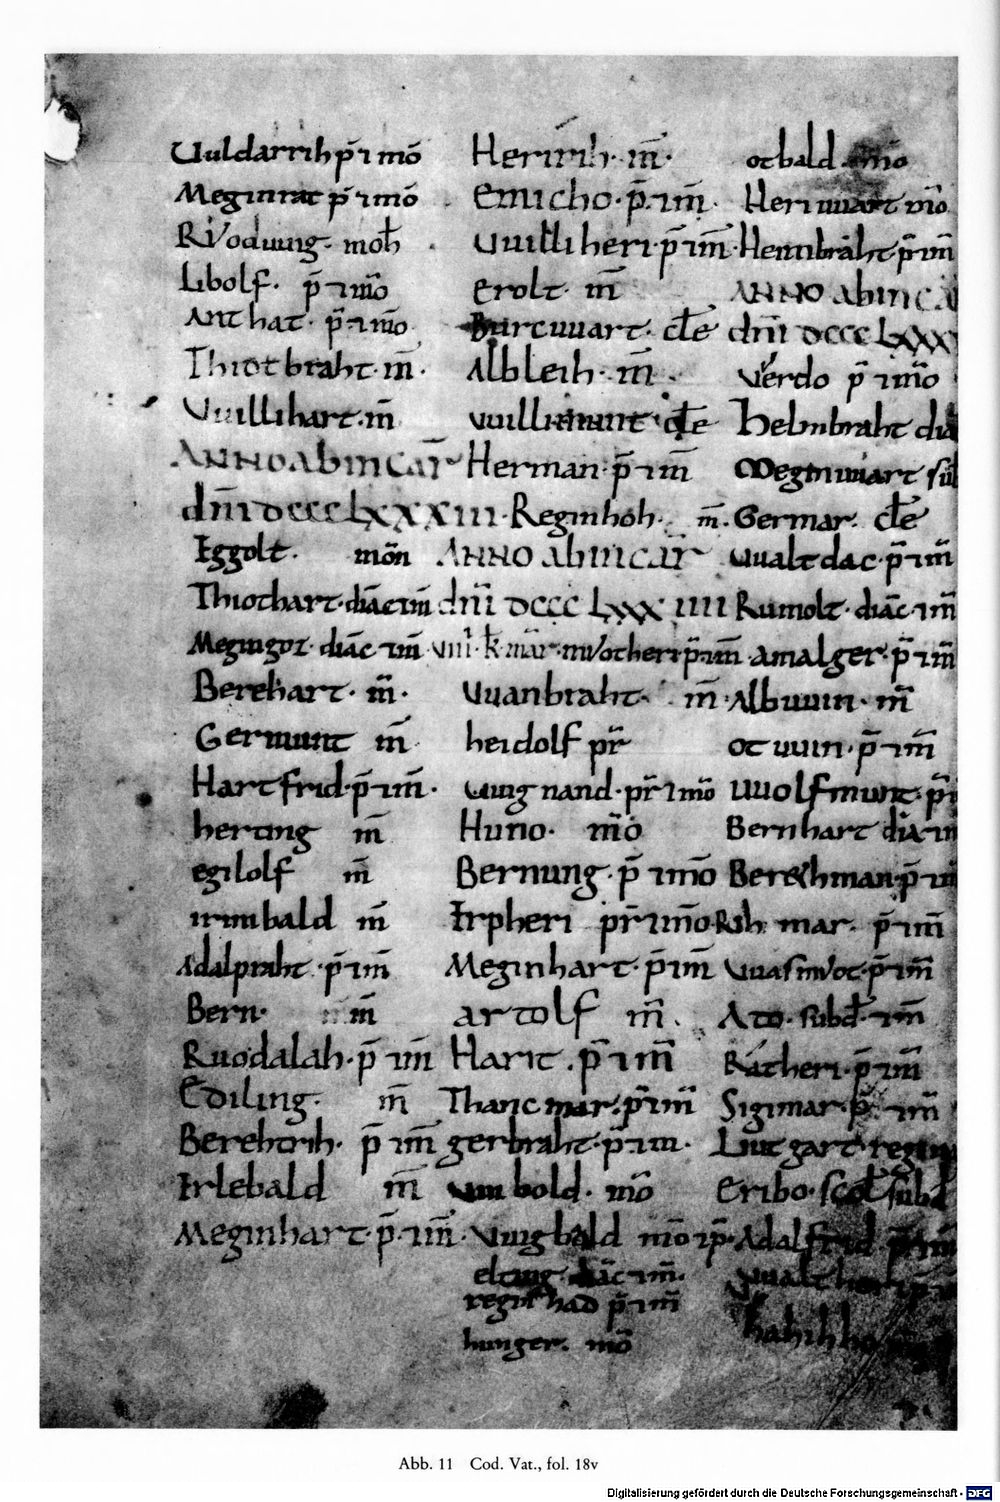 Uuldarrih pr̄ ⁊ mō
Meginrat pr̄ ⁊ mō
Ruoduuig· moh̄
Libolf· pr̄ ⁊ mō
Anthat· pr̄ ⁊ mō
Thiotbraht· m̄·
Vuillihart· m̄
ANNO abincar̄
dn̄i dcccLXXXIII·
Iggolt· mōn
Thiothart· diāc ⁊ m̄
Megingoz· diāc ⁊ m̄
Berehart· m̄·
Germunt m̄
Hartfrid· p̄ ⁊ m̄·
herting m̄
egilolf m̄
irinbald m̄
Adalpraht· p̄ ⁊ m̄
Bern· m̄
Ruodalah· p̄ ⁊ m̄
Ediling· m̄
Berehtrih· p̄ ⁊ m̄
Irlebald m̄
Meginhart· p̄ ⁊ m̄·
Heririh· m̄·
Emicho· p̄ ⁊ m̄·
Vuilliheri· p̄ ⁊ m̄·
Erolt· m̄
Burcuuart· cl̄e
Albleih· m̄·
Vuillimunt· cl̄e
Herman· p̄ ⁊ m̄
Reginhoh· m̄·
ANNO abincar̄
dn̄i dccc LXXX IIII
VIII· k̄· mār· muotheri p̄ ⁊ m̄
Vuanbraht· m̄·
heidolf pr̄
Uuignand· pr̄ ⁊ mō
Huno· mō
Bernung· p̄ ⁊ mō
Irpheri pr̄ ⁊ mō·
Meginhart· p̄ ⁊ m̄
artolf m̄·
Harit· p̄ ⁊ m̄
Thancmar· p̄ ⁊ m̄
gerbraht· p̄ ⁊ m·
Uuibold· mō
Vuigbald mō ⁊ p̄·
elting· diāc ⁊ m̄·
reginhad p̄ ⁊ m̄
hunger· mō
otbald· mō
Heriuuart mō
Heimbraht· p̄ ⁊ m̄
ANNO abinca
dn̄i dcccLXXX
Verdo p̄ ⁊ mō
Helmbraht dia
Meginuuart sub
Germar· cl̄e
Uualtdac· p̄ ⁊ m̄
Rumolt· diāc· ⁊ m̄
Amalger· p̄ ⁊ m̄
Albuuin· m̄
otuuin· p̄ ⁊ m̄
Uuolfmunt· p̄
Bernhart dia ⁊ m
Berehman· p̄ ⁊ m̄
Rihmar· p̄ ⁊ m̄
Vuasmuot· p̄ ⁊ m̄
Ato· subd̄· ⁊ m̄
Ratheri· p̄ ⁊ m̄
Sigimar· p̄· ⁊ m̄
Liutgart· regin
Eribo· scol̄ subd̄
Adalfrid p̄ ⁊ m̄
Uualtheri
Abb. 11 Cod. Vat., fol. 18v
Digitalisierung gefördert durch die Deutsche Forschungsgemeinschaft - DFG